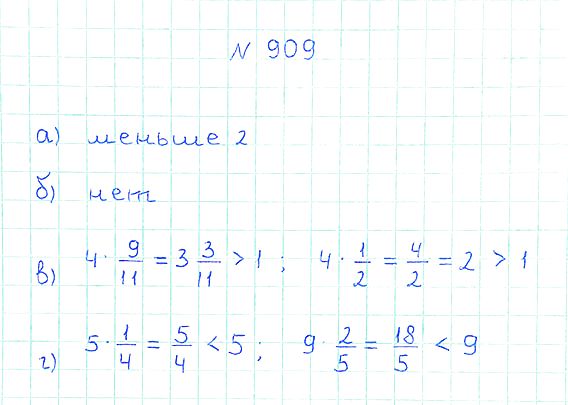 N 909
а) меньше 2
б) нет
в) 4 · 9/11 = 3 3/11 > 1 ; 4 · 1/2 = 4/2 = 2 > 1
г) 5 · 1/4 = 5/4 < 5 ; 9 · 2/5 = 18/5 < 9